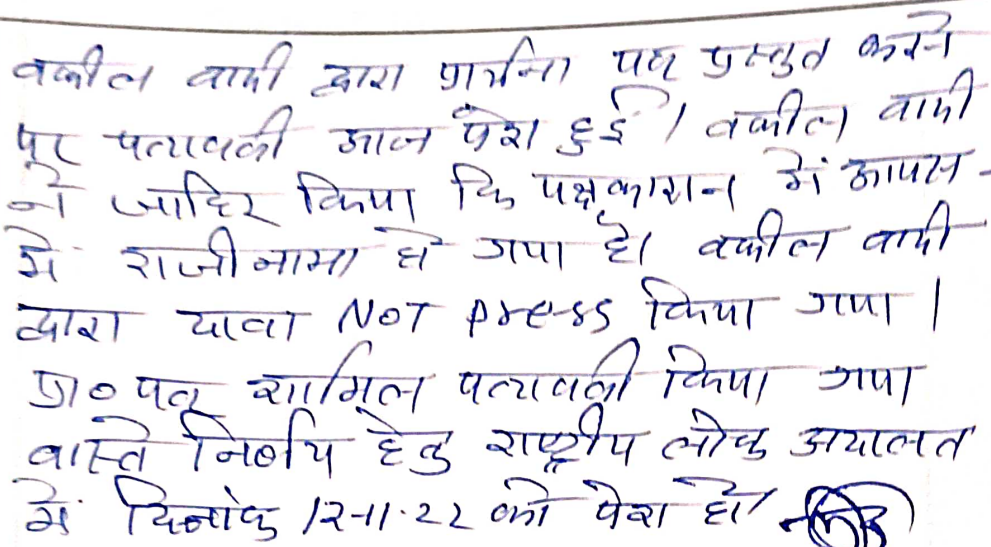 वकील वादी द्वारा प्रार्थना पत्र प्रस्तुत करने
पर पत्रावली आज पेश हुई। वकील वादी
ने जाहिर किया कि पक्षकारान में आपस
में राजीनामा हो गया है। वकील वादी
द्वारा दावा NOT press किया गया।
प्रा० पत्र शामिल पत्रावली किया गया
वास्ते निर्णय हेतु राष्ट्रीय लोक अदालत
में दिनांक 12-11-22 को पेश हो।